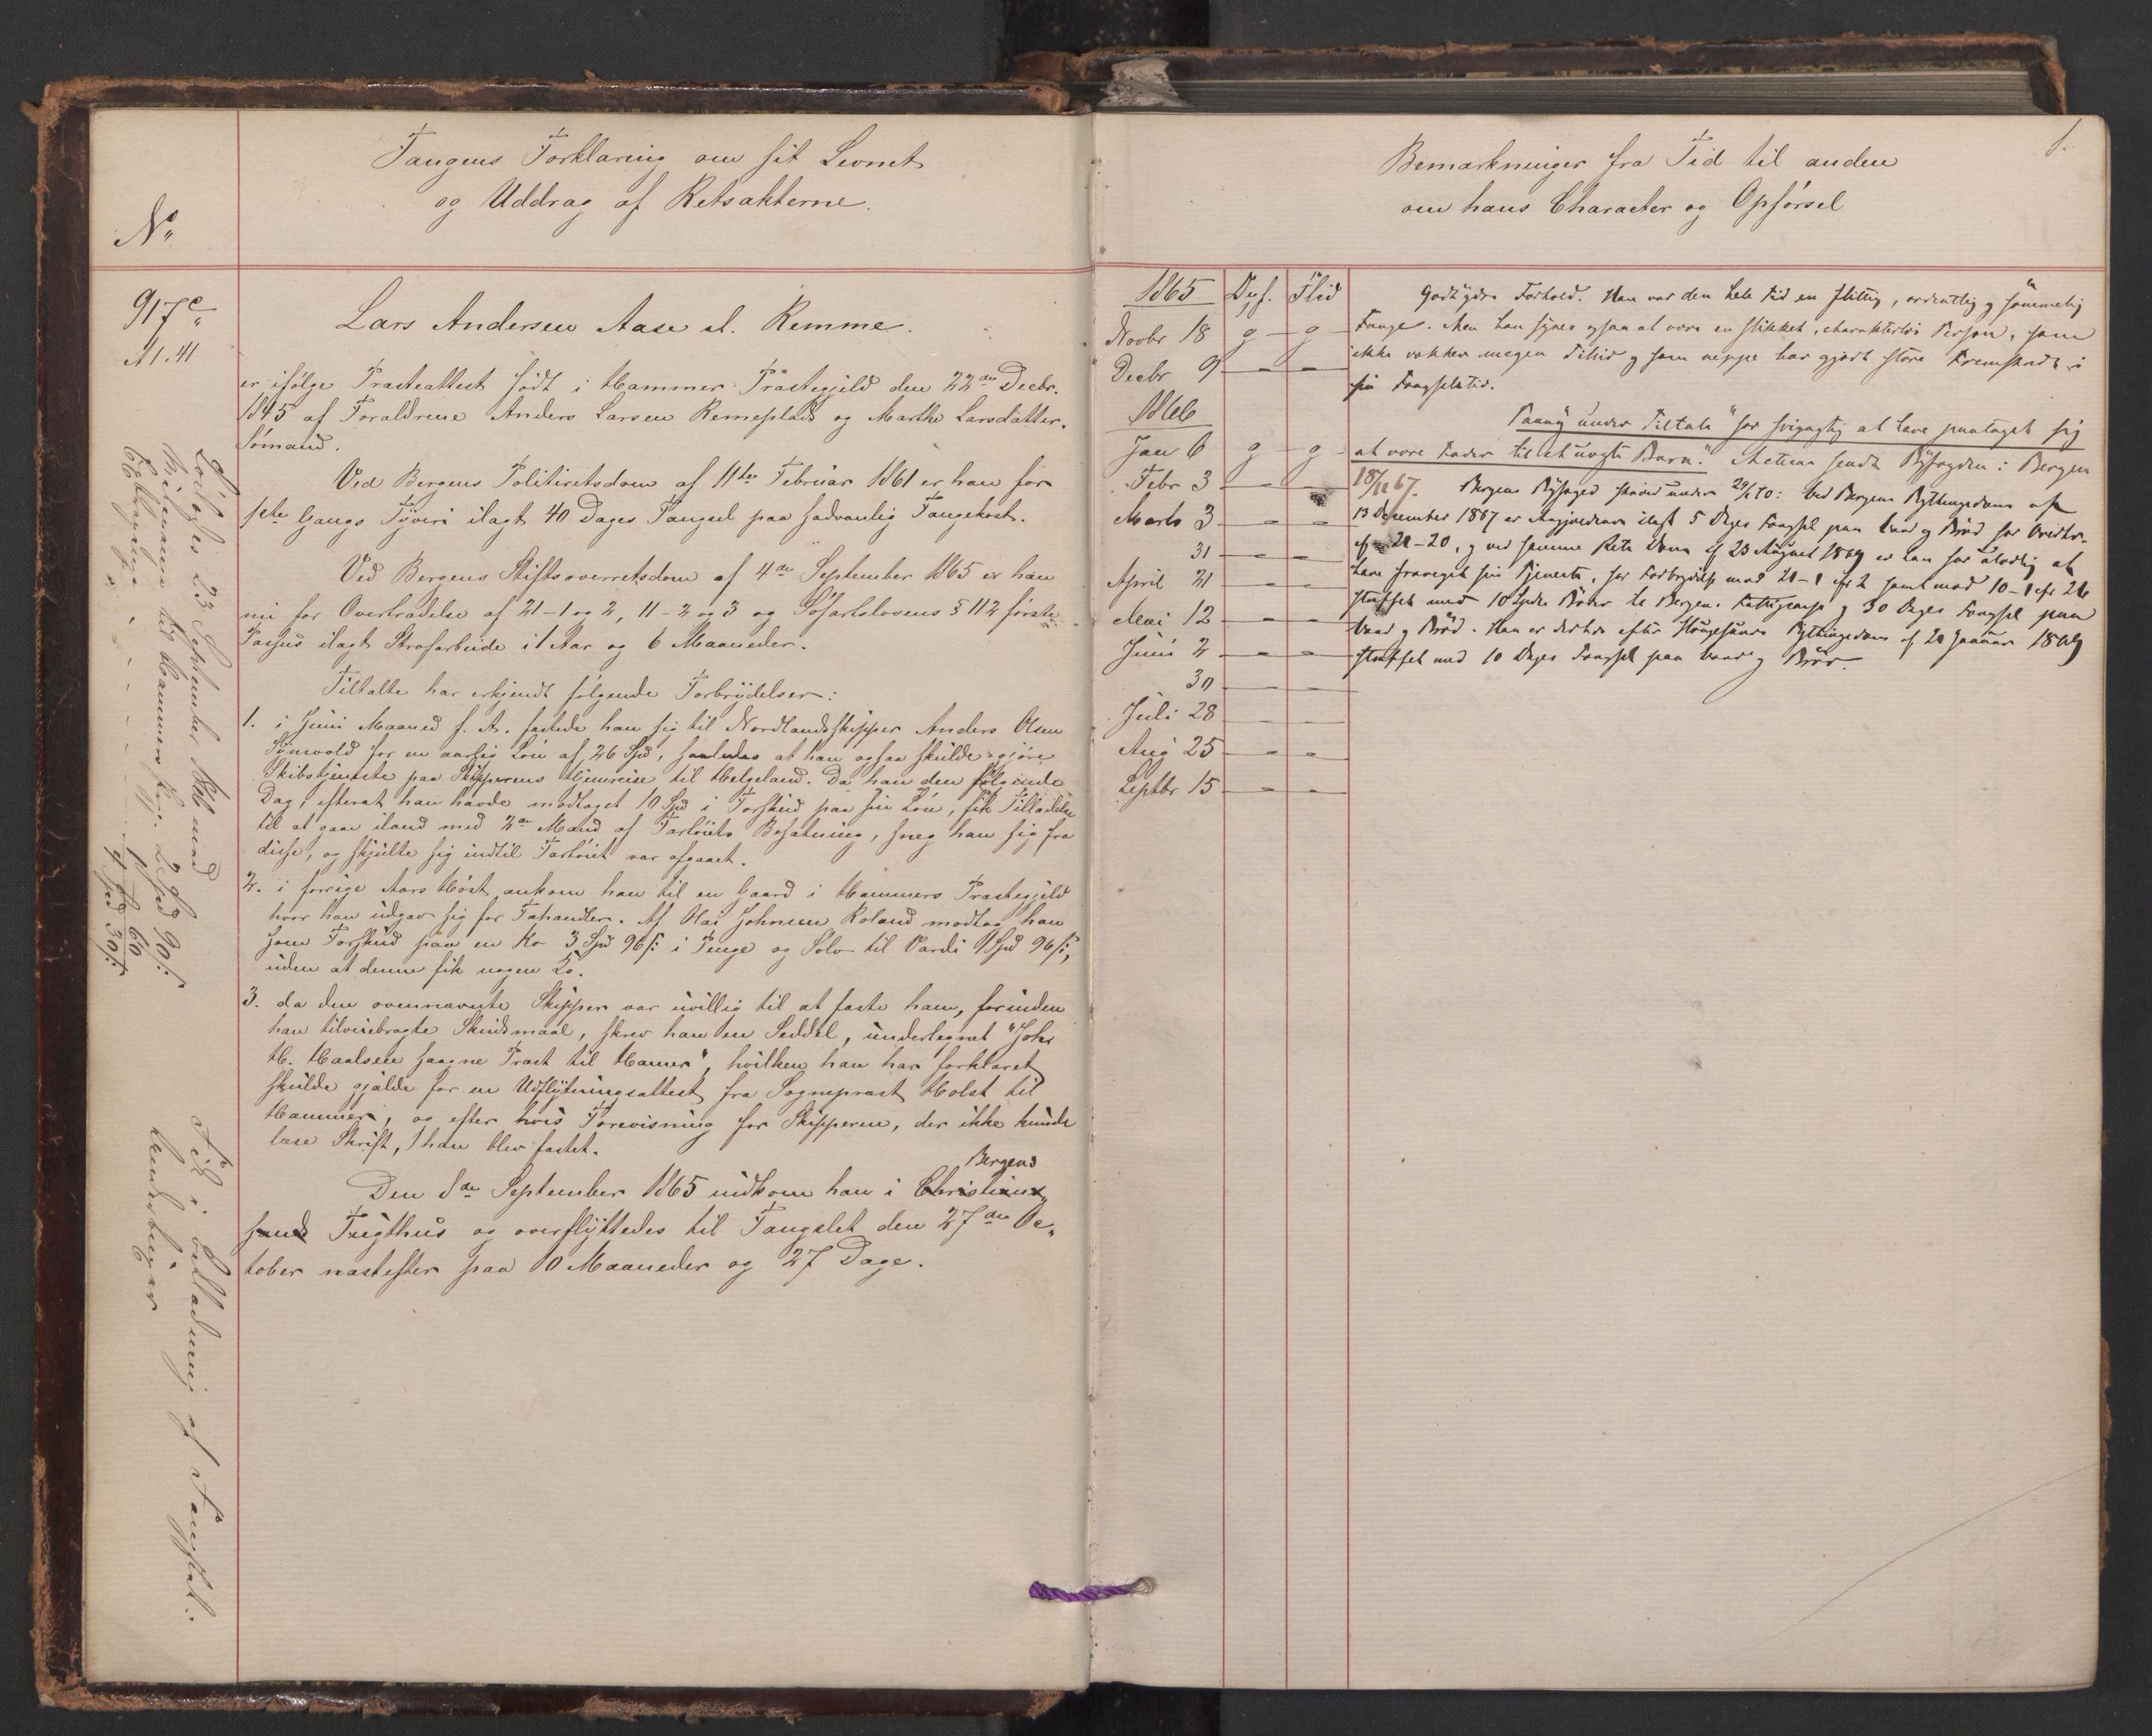 Fangens Forklaring om sit Levnet
og Uddrag af Retsakterne.
No
917c
A1.41
Lars Andersen Aase el. Remme.
er ifølge Præsteattest født i Hammer Præstegjeld den 22de Decbr.
1845 af Forældrene Anders Larsen Remeplads og Marthe Larsdatter.
Sømand.
Ved Bergens Politiretsdom af 11te Februar 1861 er han for
1ste Gangs Tyveri ilagt 40 Dages Fængsel paa sædvanlig Fangekost.
Ved Bergens Stiftsoverretsdom af 4de September 1865 er han
nu for Overtrædelse af 21-1 og 2, 11-2 og 3 og Søfartslovens § 112 første
Passus ilagt Strafarbeide i 1 Aar og 6 Maaneder.
Tiltalte har erkjendt følgende Forbrydelser:
1. i Juni Maaned f. A. fæstede han sig til Nordlandsskipper Anders Olsen
for en aarlig Løn af 26 Spd, saaledes at han ogsaa skulde gjøre
Skibstjeneste paa Skipperens Hjemreise til Helgeland. Da han den følgende
Dag, efterat han havde modtaget 10 Spd i Forskud paa sin Løn, fik Tilladelse
til at gaae iland med 2de Mand af Fartøiets Besætning, sneg han sig fra
disse, og skjulte sig indtil Fartøiet var afgaaet.
2. i forrige Aars Høst ankom han til en Gaard i Hammers Præstegjeld
hvor han udgav sig for Fæhandler. Af Olai Johnsen Roland modtog han
som Forskud paa en Ko 3 Spd 96 s: i Penge og Sølv til Værdi 1 Spd 96 s:,
uden at denne fik nogen Ko.
3. da den ovennævnte Skipper var uvillig til at fæste ham, forinden
han tilveiebragte Skudsmaal, skrev han en Seddel, undertegnet "Johs
H. Haalsen saagne Præst til Hamer", hvilken han har forklaret
skulde gjælde for en Udflytningsattest fra Sognepræst Holst til
Hammer, og efter hvis Forevisning for Skipperen, der ikke kunde
læse Skrift, han blev fæstet.
Bergens
Den 8de September 1865 indkom han i Christian-
sands Tugthus og overflyttedes til Fængslet den 27de Oc-
tober næstefter paa 10 Maaneder og 27 Dage.
Løslades 23 September 1866 med
til Hammer Prgj. 2 Spd 90 s:
Fik i af Fængslet:
1.
Bemærkninger fra Tid til anden
om hans Character og Opførsel
1865 Opf. Flid
Novbr 18 g g
Decbr 9 - -
1866
Jan 6 g g
Febr 3 - -
Marts 3 - -
31 - -
April 21 - -
Mai 12 - -
Juni 2 - -
30 - -
Juli 28 - -
Aug 25 - -
Septbr 15 - -
Godtgjdre Forhold. Han var den hele Tid en flittig, ordentlig og sømmelig
Fange. Men han synes ogsaa at være en slikket, charakterløs Person, som
ikke vækker megen Tillid og som neppe har gjort store Fremskridt i
sin Fængselstid.
Paany under Tiltale "for svigagtig at have paataget sig
at være Fader til et uægte Barn". Acterne sendt Byfogden i Bergen
18/11 67. Bergens Byfoged skriver under 29/1 70: Ved Bergens Bythingsdom af
13 December 1867 er Angjældende ilagt 5 Dages Fængsel paa Vand og Brød for Overtr.
af 21-20, og ved samme Rets Dom af 23 August 1869 er han for ulovlig at
have fraveget sin Tjeneste, for Forbrydelse mod 21-1 cfr 2 samt mod 10-1 cfr 26
straffet med 10 Spdrs Bøder til Bergens Fattigcasse og 30 Dages Fængsel paa
Vand og Brød. Han er desuden efter Haugesunds Bythingsdom af 20 Januar 1869
straffet med 10 Dages Fængsel paa Vand og Brød.